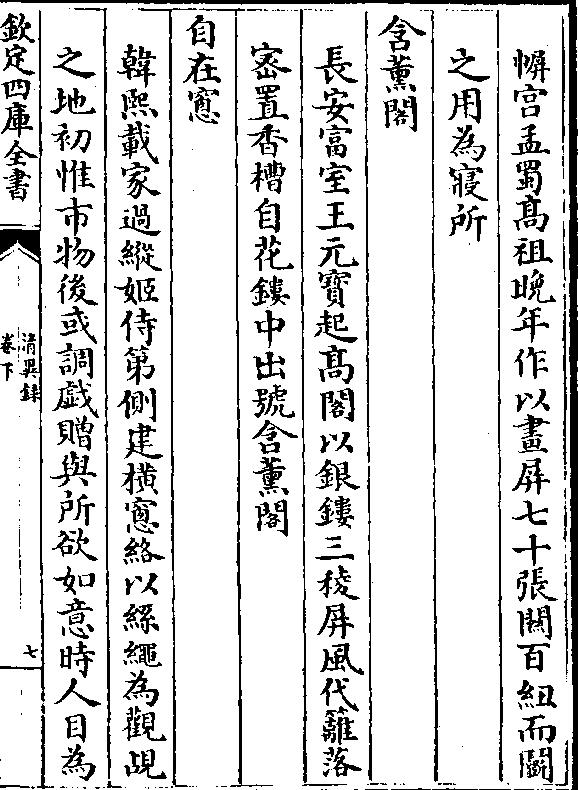 幈宫孟蜀髙祖晚年作以畫屏七十張關百紐而鬭
之用為寢所
含薰閣
長安富室王元寳起髙閣以銀鏤三稜屏風代籬落
宻置香槽自花鏤中出號含薰閣
自在窻
韓熙載家過縱姬侍第側建横窻絡以絲繩為觀覘
之地初惟市物後或調戲贈與所欲如意時人目為
欽定四庫全書
清異録
卷下
七